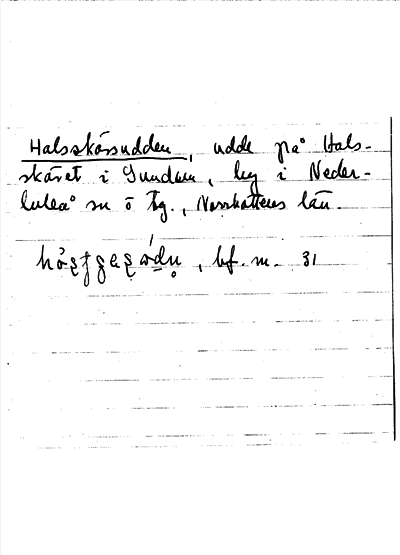 Halsskärsudden, udde på Hals-
skäret i Sundom, by i Neder-
luleå sn o tg., Norrbottens län.
bf. m. 31